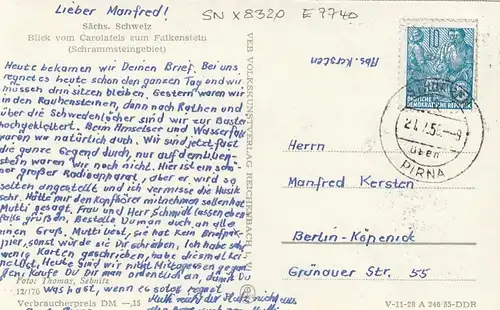 Lieber Manfred!
SN X8320 E7740
Sächs. Schweiz
Blick vom Carolafels zum Falkenstein
(Schrammsteingebiet)
Heute bekamen wir Deinen Brief. Bei uns
regnet es heute schon den ganzen Tag und wir
müssen drin sitzen bleiben. Gestern waren wir
in den Rauhensteinen, dann nach Rathen und
über die Schwedenlöcher sind wir zur Bastei
hochgeklettert. Beim Amselsee und Wasserfall
waren wir natürlich auch. Wir sind jetzt fast
die ganze Gegend durch, nur auf dem Lilien-
stein waren wir noch nicht. Hier ist ein
großer Radioapparat, aber er wird so
selten angestellt und ich vermisse die Musik
sehr. Hätte mir den Kopfhörer mitnehmen sollen hat
Mutti gesagt. Frau und Herr Schmidt lassen eben-
falls grüßen. Bestelle Du man auch an alle
einen Gruß. Mutti liest, sie hat kein Briefpa-
pier, sonst würde sie Dir schreiben. Ich habe sehr
wenig Karten geschrieben, habe diesmal kei-
Heute sind wir nicht Mittagessen gegan-
gen. Kaufe Du Dir man ordentlich an, damit Du
was hast, wenn es so regnet
Foto: Thomas, Sebnitz
12/176
Verbraucherpreis DM —,15
VEB VOLKSKUNSTVERLAG REICHENBACH i. V.
Abs. Kersten
10
DEUTSCHE
DEMOKRATISCHE REPUBLIK
21.7.5
PIRNA
Herrn
Manfred Kersten
Berlin-Köpenick
Grünauer Str. 55
V-11-28 A 246/55-DDR